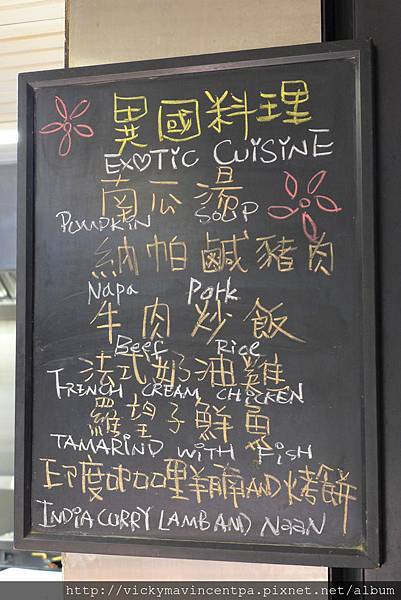 異國料理
EXOTIC CUISINE
南瓜湯
PUMPKIN SOUP
納帕鹹豬肉
Napa Pork
牛肉炒飯
Beef Rice
法式奶油雞
FRENCH CREAM CHICKEN
羅望子鮮魚
TAMARIND WITH FISH
印度咖哩羊腩AND烤餅
INDIA CURRY LAMB AND NaaN
http://vickymavincentpa.pixnet.net/album